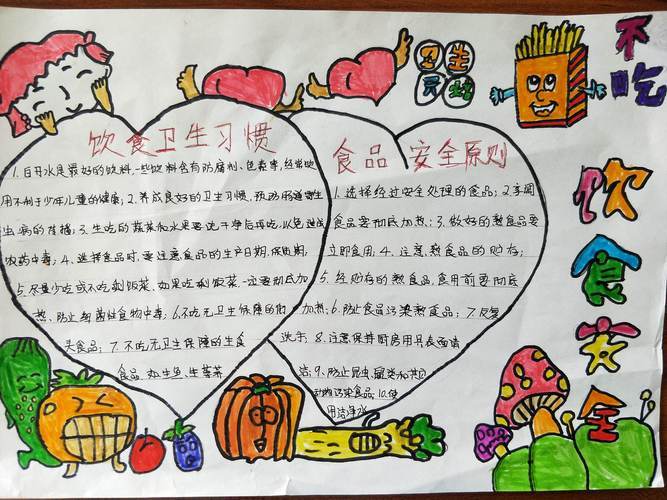 饮食卫生习惯
1.白开水是最好的饮料,一些饮料含有防腐剂、色素等,经常饮
用不利于少年儿童的健康;2.养成良好的卫生习惯,预防肠道寄生
虫病的传播;3.生吃的蔬菜和水果要洗干净后再吃,以免造成
农药中毒;4.选择食品时,要注意食品的生产日期、保质期;
5.尽量少吃或不吃剩饭菜,如果吃剩饭菜,一定要彻底加
热、防止细菌性食物中毒;6.不吃无卫生保障的街
头食品;7.不吃无卫生保障的生食
食品,如生鱼、生荸荠
食品安全原则
1.选择经过安全处理的食品;2.烹调
食品要彻底加热;3.做好的熟食品要
立即食用;4.注意熟食品的贮存;
5.经贮存的熟食品,食用前要彻底
加热;6.防止食品污染熟食品;7.反复
洗手;8.注意保持厨房用具表面清
洁;9.防止昆虫、鼠类和其他
动物污染食品;10.使
用洁净水
卫生
不吃
饮食安全